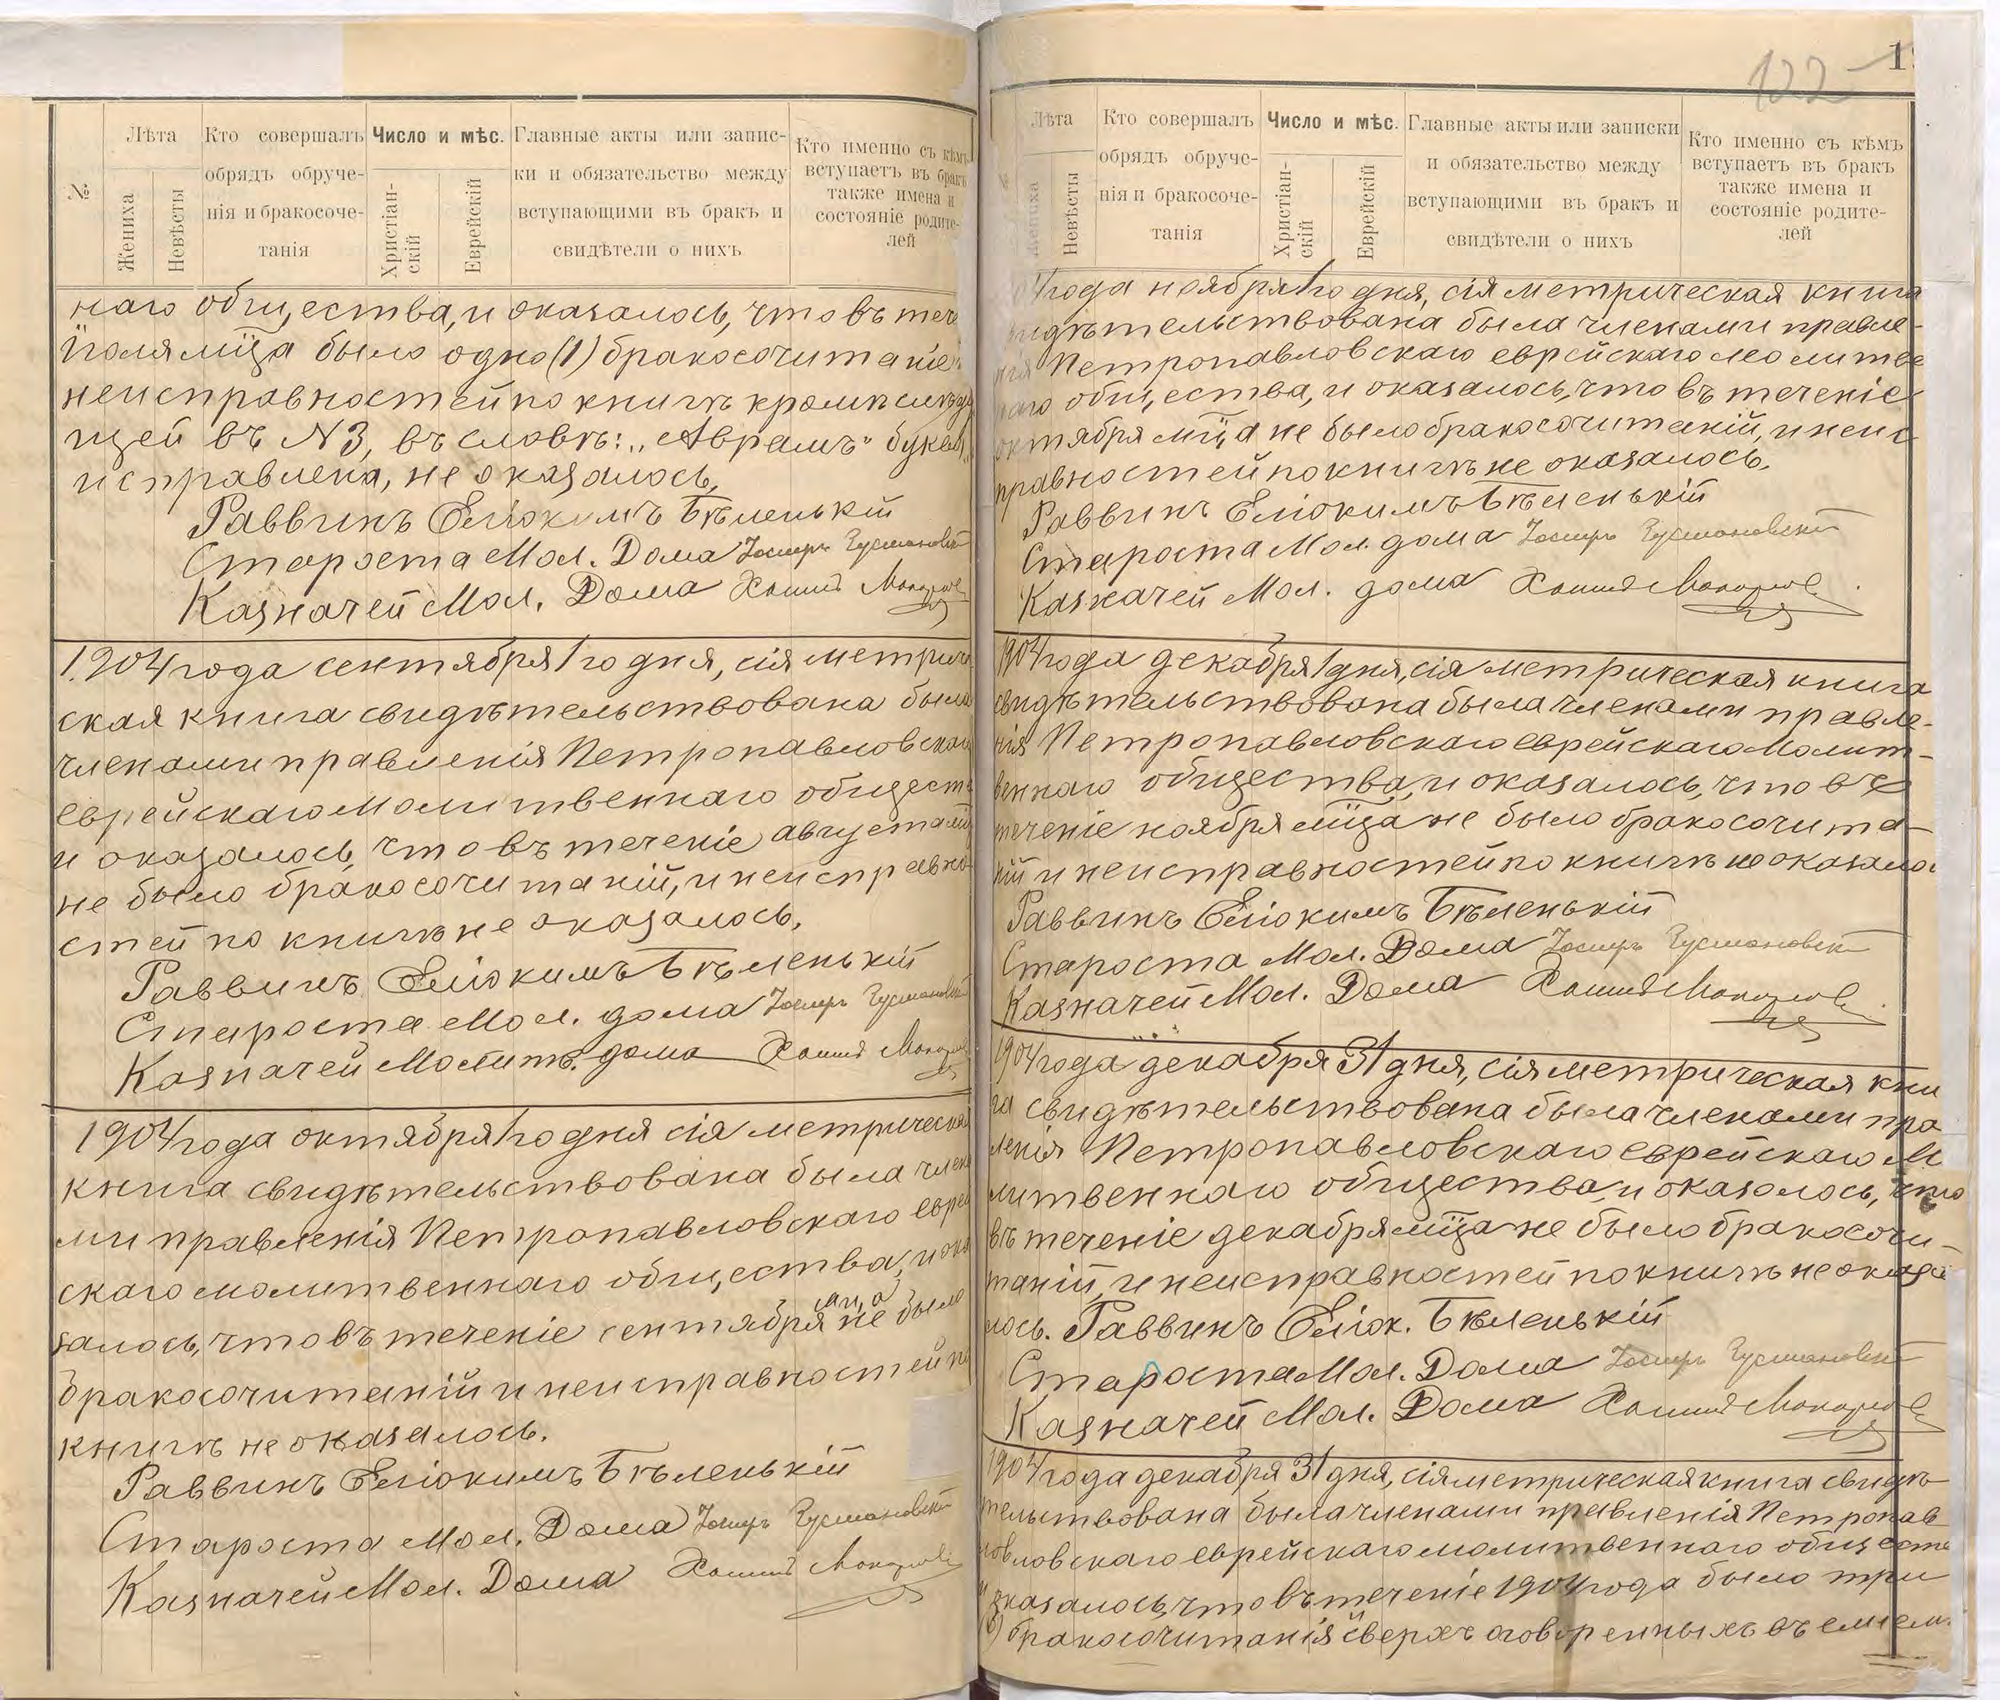 №
Лѣта
Жениха
Невѣсты
Кто совершалъ
обрядъ обруче-
нія и бракосоче-
танія
Число и мѣс.
Христіан-
скій
Еврейскій
Главные акты или запис-
ки и обязательство между
вступающими въ бракъ и
свидѣтели о нихъ
Кто именно съ кѣмъ
вступаетъ въ бракъ
также имена и
состояніе родите-
лей
наго общества, и оказалось, что въ тече
Іюля мца было одно (1) бракосочитаніе
неисправностей по книгѣ кромѣ слѣду
щей въ №3, въ словѣ: „Аврамъ" буква
исправлена, не оказалось.
Раввинъ Еліокимъ Бѣленькій
Староста Мол. Дома
Казначей Мол. Дома
1904 года сентября 1го дня, сія метриче
ская книга свидѣтельствована была
членами правленія Петропавловскаго
еврейскаго молитвеннаго обществ
и оказалось, что въ теченіе августа мца
не было бракосочитаній, и неисправно-
стей по книгѣ не оказалось.
Раввинъ Еліокимъ Бѣленькій
Староста Мол. дома
Казначей Молитв. дома
1904 года октября 1го дня сія метрическая
книга свидѣтельствована была член
ми правленія Петропавловскаго еврей
скаго молитвеннаго общества, и ока
залось, что въ теченіе сентября мца не было
бракосочитаній и неисправностей по
книгѣ не оказалось.
Раввинъ Еліокимъ Бѣленькій
Староста Мол. Дома
Казначей Мол. Дома
122
1
Лѣта
Жениха
Невѣсты
Кто совершалъ
обрядъ обруче-
нія и бракосоче-
танія
Число и мѣс.
Христіан-
скій
Еврейскій
Главные акты или записки
и обязательство между
вступающими въ бракъ и
свидѣтели о нихъ
Кто именно съ кѣмъ
вступаетъ въ бракъ
также имена и
состояніе родите-
лей
4 года ноября 1го дня, сія метрическая книга
видѣтельствована была членами правле-
нія Петропавловскаго еврейскаго молитве
наго общества, и оказалось, что въ теченіе
октября мца не было бракосочитаній, и неис
правностей по книгѣ не оказалось.
Раввинъ Еліокимъ Бѣленькій
Староста Мол. дома
Казначей Мол. дома
1904 года декабря 1 дня, сія метрическая книга
свидѣтельствована была членами правле-
нія Петропавловскаго еврейскаго молит-
веннаго общества, и оказалось, что въ
теченіе ноября мца не было бракосочита-
ній и неисправностей по книгѣ не оказало
Раввинъ Еліокимъ Бѣленькій
Староста Мол. Дома
Казначей Мол. Дома
1904 года декабря 31 дня, сія метрическая кни
га свидѣтельствована была членами пра
ленія Петропавловскаго еврейскаго м
литвеннаго общества, и оказалось, что
въ теченіе декабря мца не было бракосочи-
таній, и неисправностей по книгѣ не оказа
лось. Раввинъ Еліок. Бѣленькій
Староста Мол. Дома
Казначей Мол. Дома
1904 года декабря 31 дня, сія метрическая книга свидѣ
тельствована была членами правленія Петропав
ловскаго еврейскаго молитвеннаго обществ
оказалось, что въ теченіе 1904 года было три
бракосочитанія сверхъ оговоренныхъ